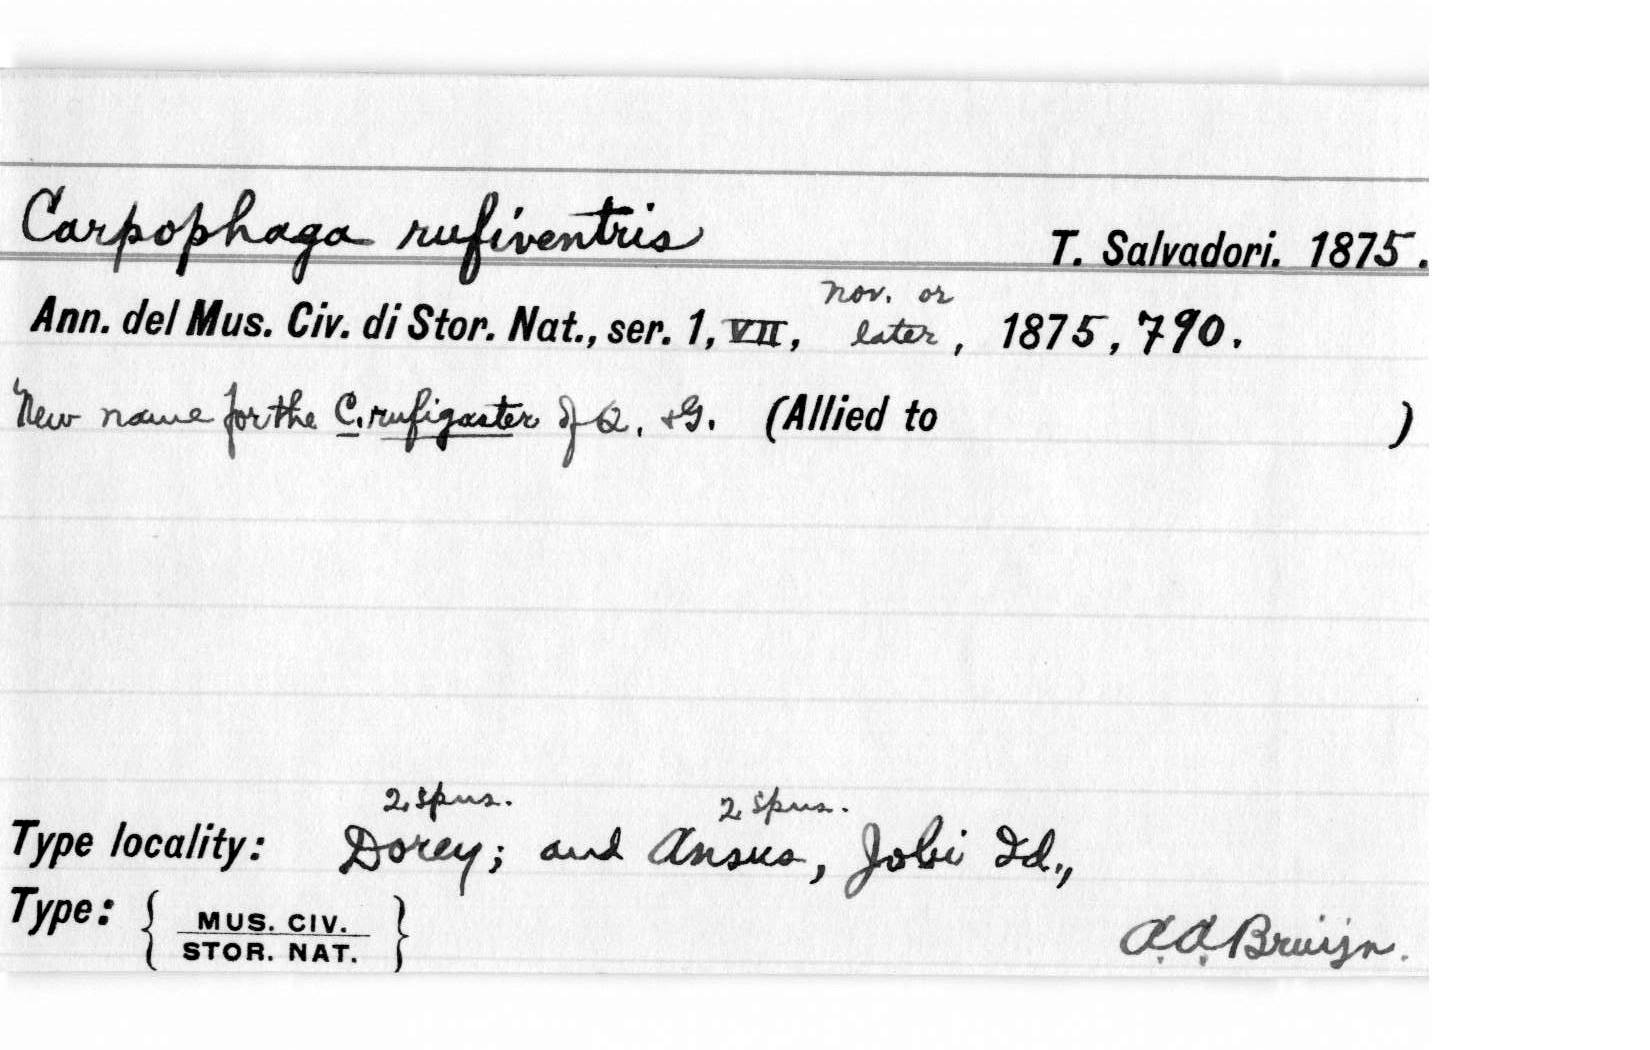 Carpophaga rufiventris T. Salvadori. 1875.
Ann. del Mus. Civ. di Stor. Nat., ser. 1, VII, Nov. or later, 1875, 790.
New name for the C. rufigaster of Q. & G. (Allied to )
2 spns. 2 spns.
Type locality: Dorey; and Ansus, Jobi Id.,
Type: { MUS. CIV.
STOR. NAT. }
A.A. Bruijn.